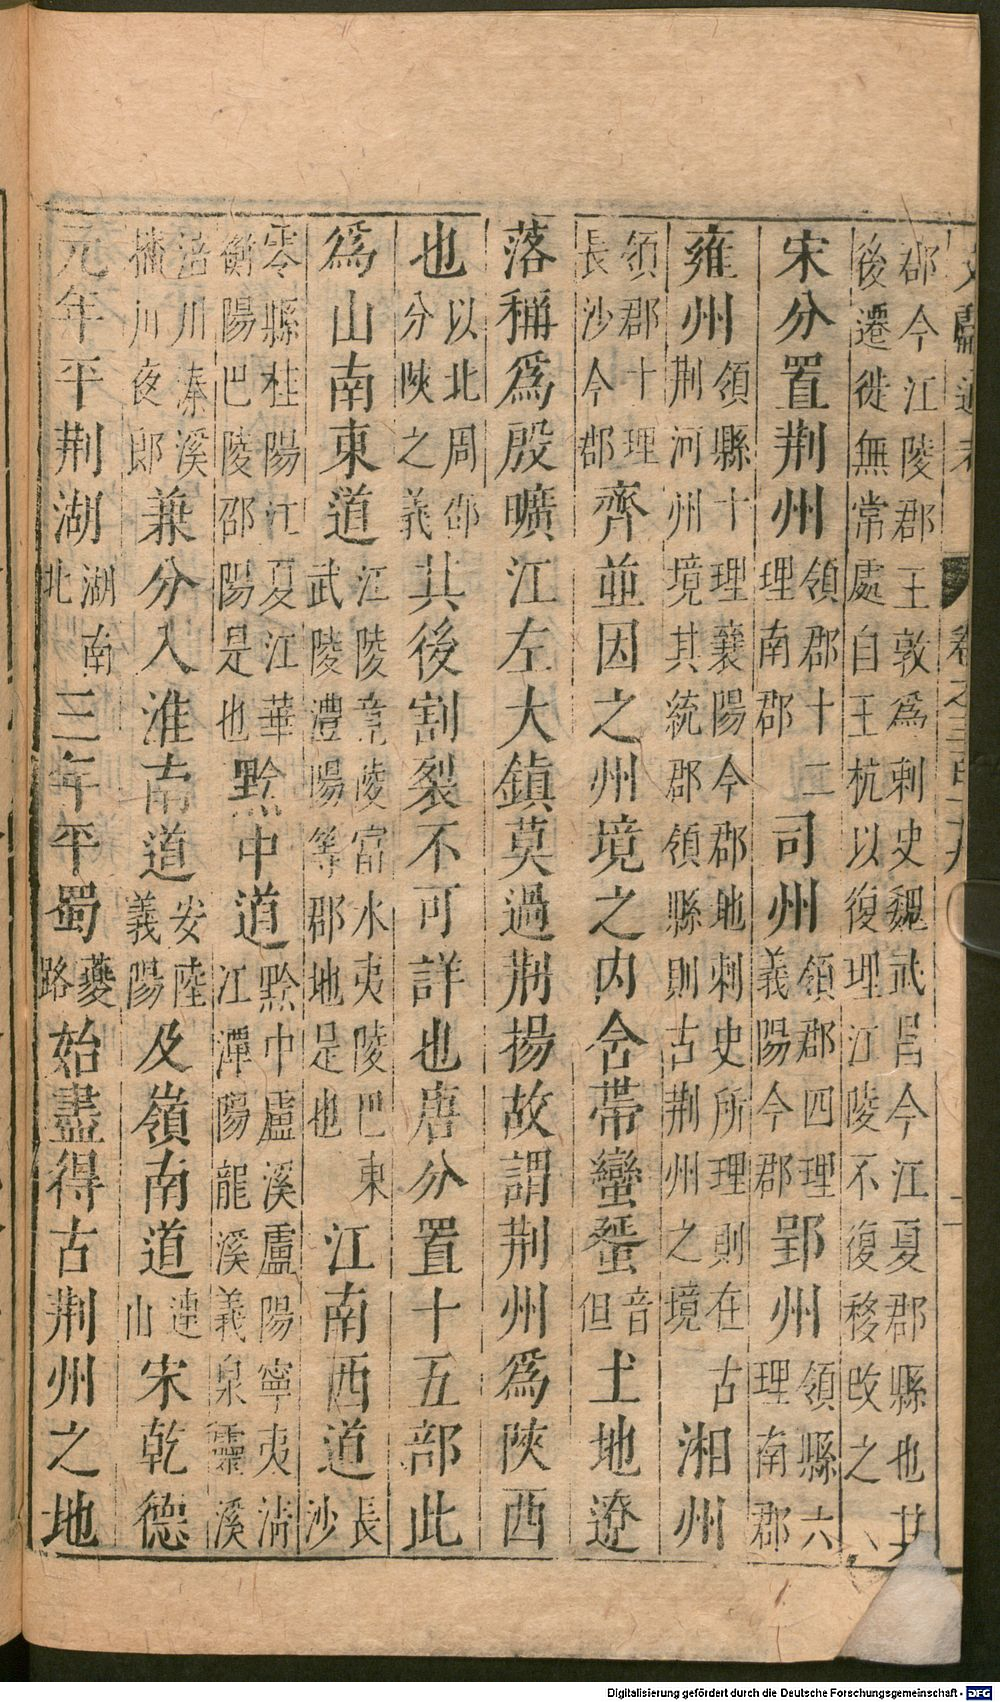 郡今江陵郡王敦爲刺史魏武昌今江夏郡縣也其
後遷徙無常處自王杭以復理江陵不復移改之
宋分置荆州領郡十二理南郡司州領郡四理義陽今郡郢州領縣六理南郡
雍州領縣十理襄陽今郡地刺史所理則在古荆河州境其統郡領縣則古荆州之境湘州
領郡十理長沙今郡齊並因之州境之内含帶蠻蜑音但土地遼
落稱爲殷曠江左大鎮莫過荆揚故謂荆州爲陝西
也以北周邵分陝之義其後割裂不可詳也唐分置十五部此
爲山南東道江陵竟陵富水夷陵巴東武陵澧陽等郡地是也江南西道長沙
零縣桂陽江夏江華衡陽巴陵邵陽是也黔中道黔中盧溪盧陽寧夷清江潭陽龍溪義泉靈溪
涪川溱溪播川夜郎兼分入淮南道安陸義陽及嶺南道連山宋乾德
元年平荆湖湖南北三年平蜀夔路始盡得古荆州之地
Digitalisierung gefördert durch die Deutsche Forschungsgemeinschaft - DFG